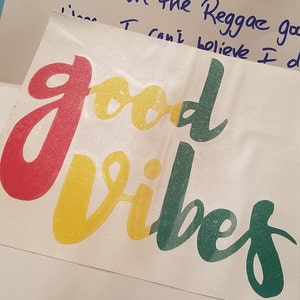 the Reggae goo
I can't believe I d
good
vibes